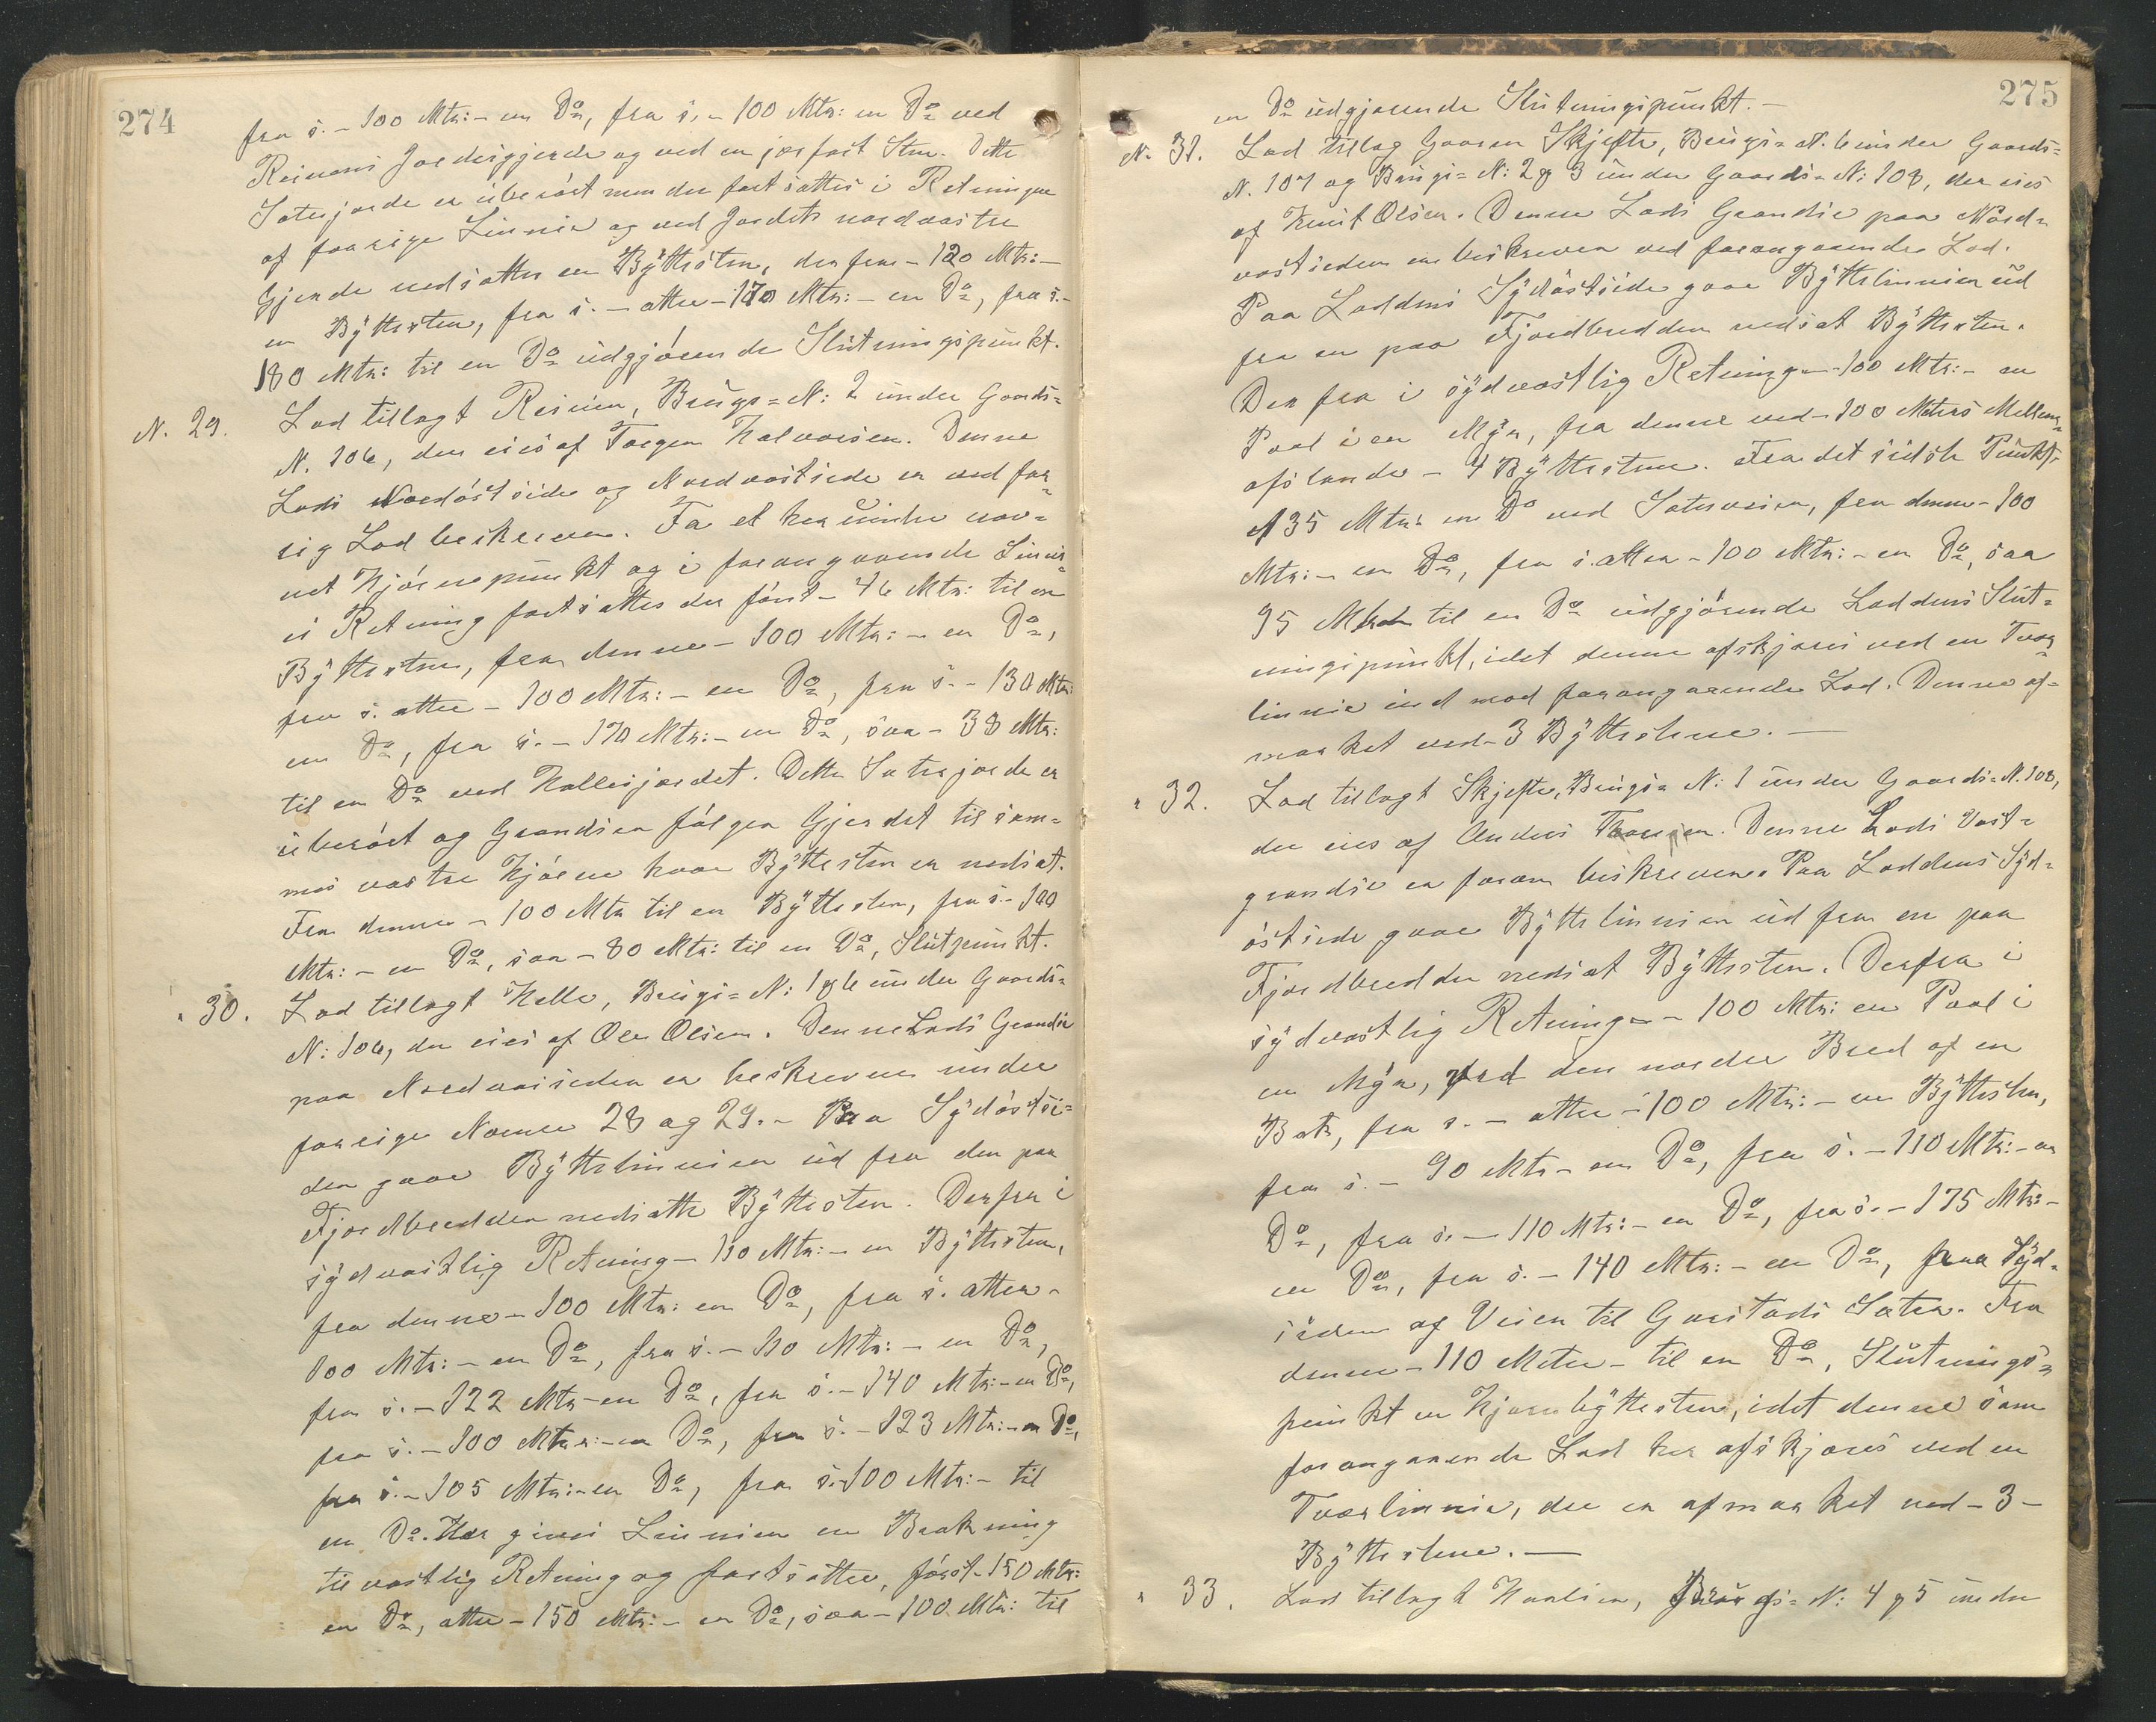 274
fra s. - 100 Mtr: - en Do, fra s. - 100 Mtr: en Do ved
Reinens Jordesgjerde og ved en jorfast Sten. Dette
Säterjorde er uberört men der fortsættes i Retningen
af forrige Linnie og ved Jordets nordvestre
Gjerde nedsattes en Byttesten, derfra - 120 Mtr: -
en Byttesten, fra s. - atter - 170 Mtr: - en Do, fra s. -
180 Mtr: til en Do udgjörende Slutningspunkt.
N. 29. Lod tillagt Reinen, Brugs=N: 2 under Gaards=
N. 106, der eies af Torger Halvorsen. Denne
Lods Nordöstside og Nordvestside er ved for=
rig Lod beskreven. Fra et her under nav=
net Hjörnepunkt og i forangaaende Linni=
es Retning fortsættes der först - 46 Mtr: til en
Byttesten, fra denne - 100 Mtr: - en Do,
fra s. atter - 100 Mtr: - en Do, fra s. - 130 Mtr:
en Do, fra s. - 170 Mtr: - en Do, saa - 38 Mtr:
til en Do ved Hallesjordet. Dette Säterjorde er
uberört og Grændsen fölger Gjerdet til sam=
mes vestre Hjörne hvor Byttesten er nedsat.
Fra denne - 100 Mtr til en Byttesten, fra s. - 100
Mtr: - en Do, saa - 80 Mtr: til en Do, Slutpunkt.
" 30. Lod tillagt Halle, Brugs=N: 1 & 6 under Gaards=
N: 106, der eies af Ole Olsen. Denne Lods Grændse
paa Nordvestsiden er beskreven under
forrige Numre 28 og 29. - Paa Sydöstsi=
den gaar Byttelinnien ud fra den paa
Fjordbredden nedsatte Byttesten. Derfra i
sydvestlig Retning - 110 Mtr: - en Byttesten,
fra denne - 100 Mtr: en Do, fra s. atter -
100 Mtr: - en Do, fra s. - 110 Mtr: - en Do,
fra s. - 122 Mtr - en Do, fra s. - 140 Mtr: - en Do,
fra s. - 100 Mtr: - en Do, fra s. - 123 Mtr: - en Do,
fra s. - 105 Mtr: - en Do, fra s. - 100 Mtr: - til
en Do. Her gives Linnien en Brækning
til vestlig Retning og fortsætter, först - 150 Mtr:
en Do, atter - 150 Mtr: - en Do, saa - 100 Mtr: til
275
en Do udgjörende Slutningspunkt. -
N. 31. Lod tillag Gaarden Skjefte, Brugs=N. 6 under Gaards=
N. 107 og Brugs=N: 2 & 3 under Gaards=N: 108, der eies
af Knut Olsen. Denne Lods Grændse paa Nord=
vestsiden er beskreven ved forangaaende Lod.
Paa Loddens Sydöstside gaar Byttelinnien ud
fra en paa Fjordbredden nedsat Byttesten.
Derfra i sydvestlig Retning - 100 Mtr: - en
Pæl i en Myr, fra denne ved - 100 Meters Mellem=
afstande - 4 Byttestene. Fra det sidste Punkt
135 Mtr: en Do ved Säterveien, fra denne - 100
Mtr: - en Do, fra s. atter - 100 Mtr: - en Do, saa
95 Meter til en Do udgjörende Loddens Slut=
ningspunkt, idet denne afskjæres ved en Tvær=
linnie ind mod forangaaende Lod. Denne af=
mærket ved - 3 Byttestene. -
" 32. Lod tillagt Skjefte, Brugs=N: 1 under Gaards=N. 108,
der eies af Anders . Denne Lods Vest=
grændse er foran beskreven. Paa Loddens Syd=
östside gaar Byttelinnien ud fra en paa
Fjordbredden nedsat Byttesten. Derfra i
sydvestlig Retning - 100 Mtr: en Pæl i
en Myr, ved den nordre Bred af en
, fra s. - atter - 100 Mtr: - en Byttesten,
fra s. - 90 Mtr - en Do, fra s. - 110 Mtr: - en
Do, fra s. - 110 Mtr: - en Do, fra s. - 175 Mtr: -
en Do, fra s. - 140 Mtr: - en Do, paa Syd=
siden af Veien til Garstads Säter. Fra
denne - 110 Meter - til en Do, Slutnings=
punkt en Hjørnebyttesten, idet denne som
forangaaende Lod her afskjæres ved en
Tværlinnie, der er afmærket ved - 3 -
Byttestene. -
" 33. Lod tillagt Haalien, Brugs=N: 4 & 5 under